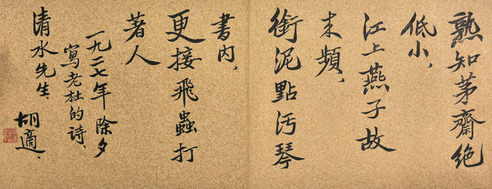 熟知茅齋絕
低小，
江上燕子故
來頻，
銜泥點汚琴
書內，
更接飛蟲打
著人，
一九二七年除夕
寫老杜的詩，
清水先生，
胡適，